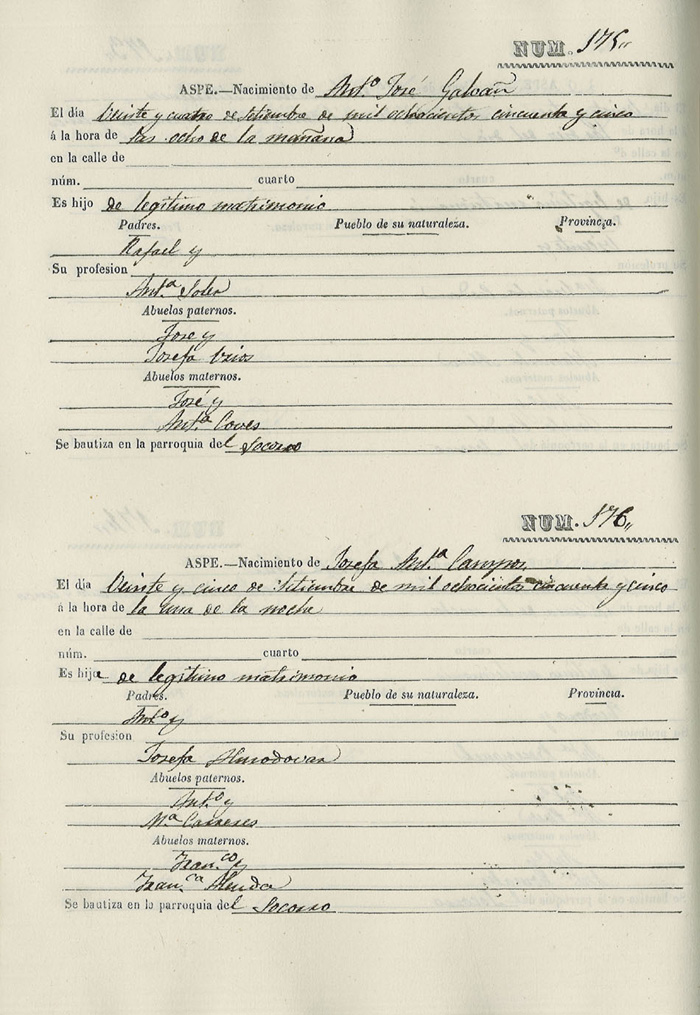 NUM. 175
ASPE.—Nacimiento de Ant.º José Galvañ
El dia Veinte y cuatro de Setiembre de mil ochocientos cincuenta y cinco
á la hora de las ocho de la mañana
en la calle de
núm. cuarto
Es hijo de legítimo matrimonio
Padres. Pueblo de su naturaleza. Provincia.
Rafael y
Su profesion
Ant.ª Soler
Abuelos paternos.
Jose y
Josefa Urios
Abuelos maternos.
José y
Ant.ª Coves
Se bautiza en la parroquia del Socorro
NUM. 176
ASPE.—Nacimiento de Josefa Ant.ª Campos
El dia Veinte y cinco de Setiembre de mil ochocientos cincuenta y cinco
á la hora de la una de la noche
en la calle de
núm. cuarto
Es hija de legítimo matrimonio
Padres. Pueblo de su naturaleza. Provincia.
Ant.º y
Su profesion
Josefa Almodovar
Abuelos paternos.
Ant.º y
M.ª Carreres
Abuelos maternos.
Fran.co y
Fran.ca Alenda
Se bautiza en la parroquia del Socorro